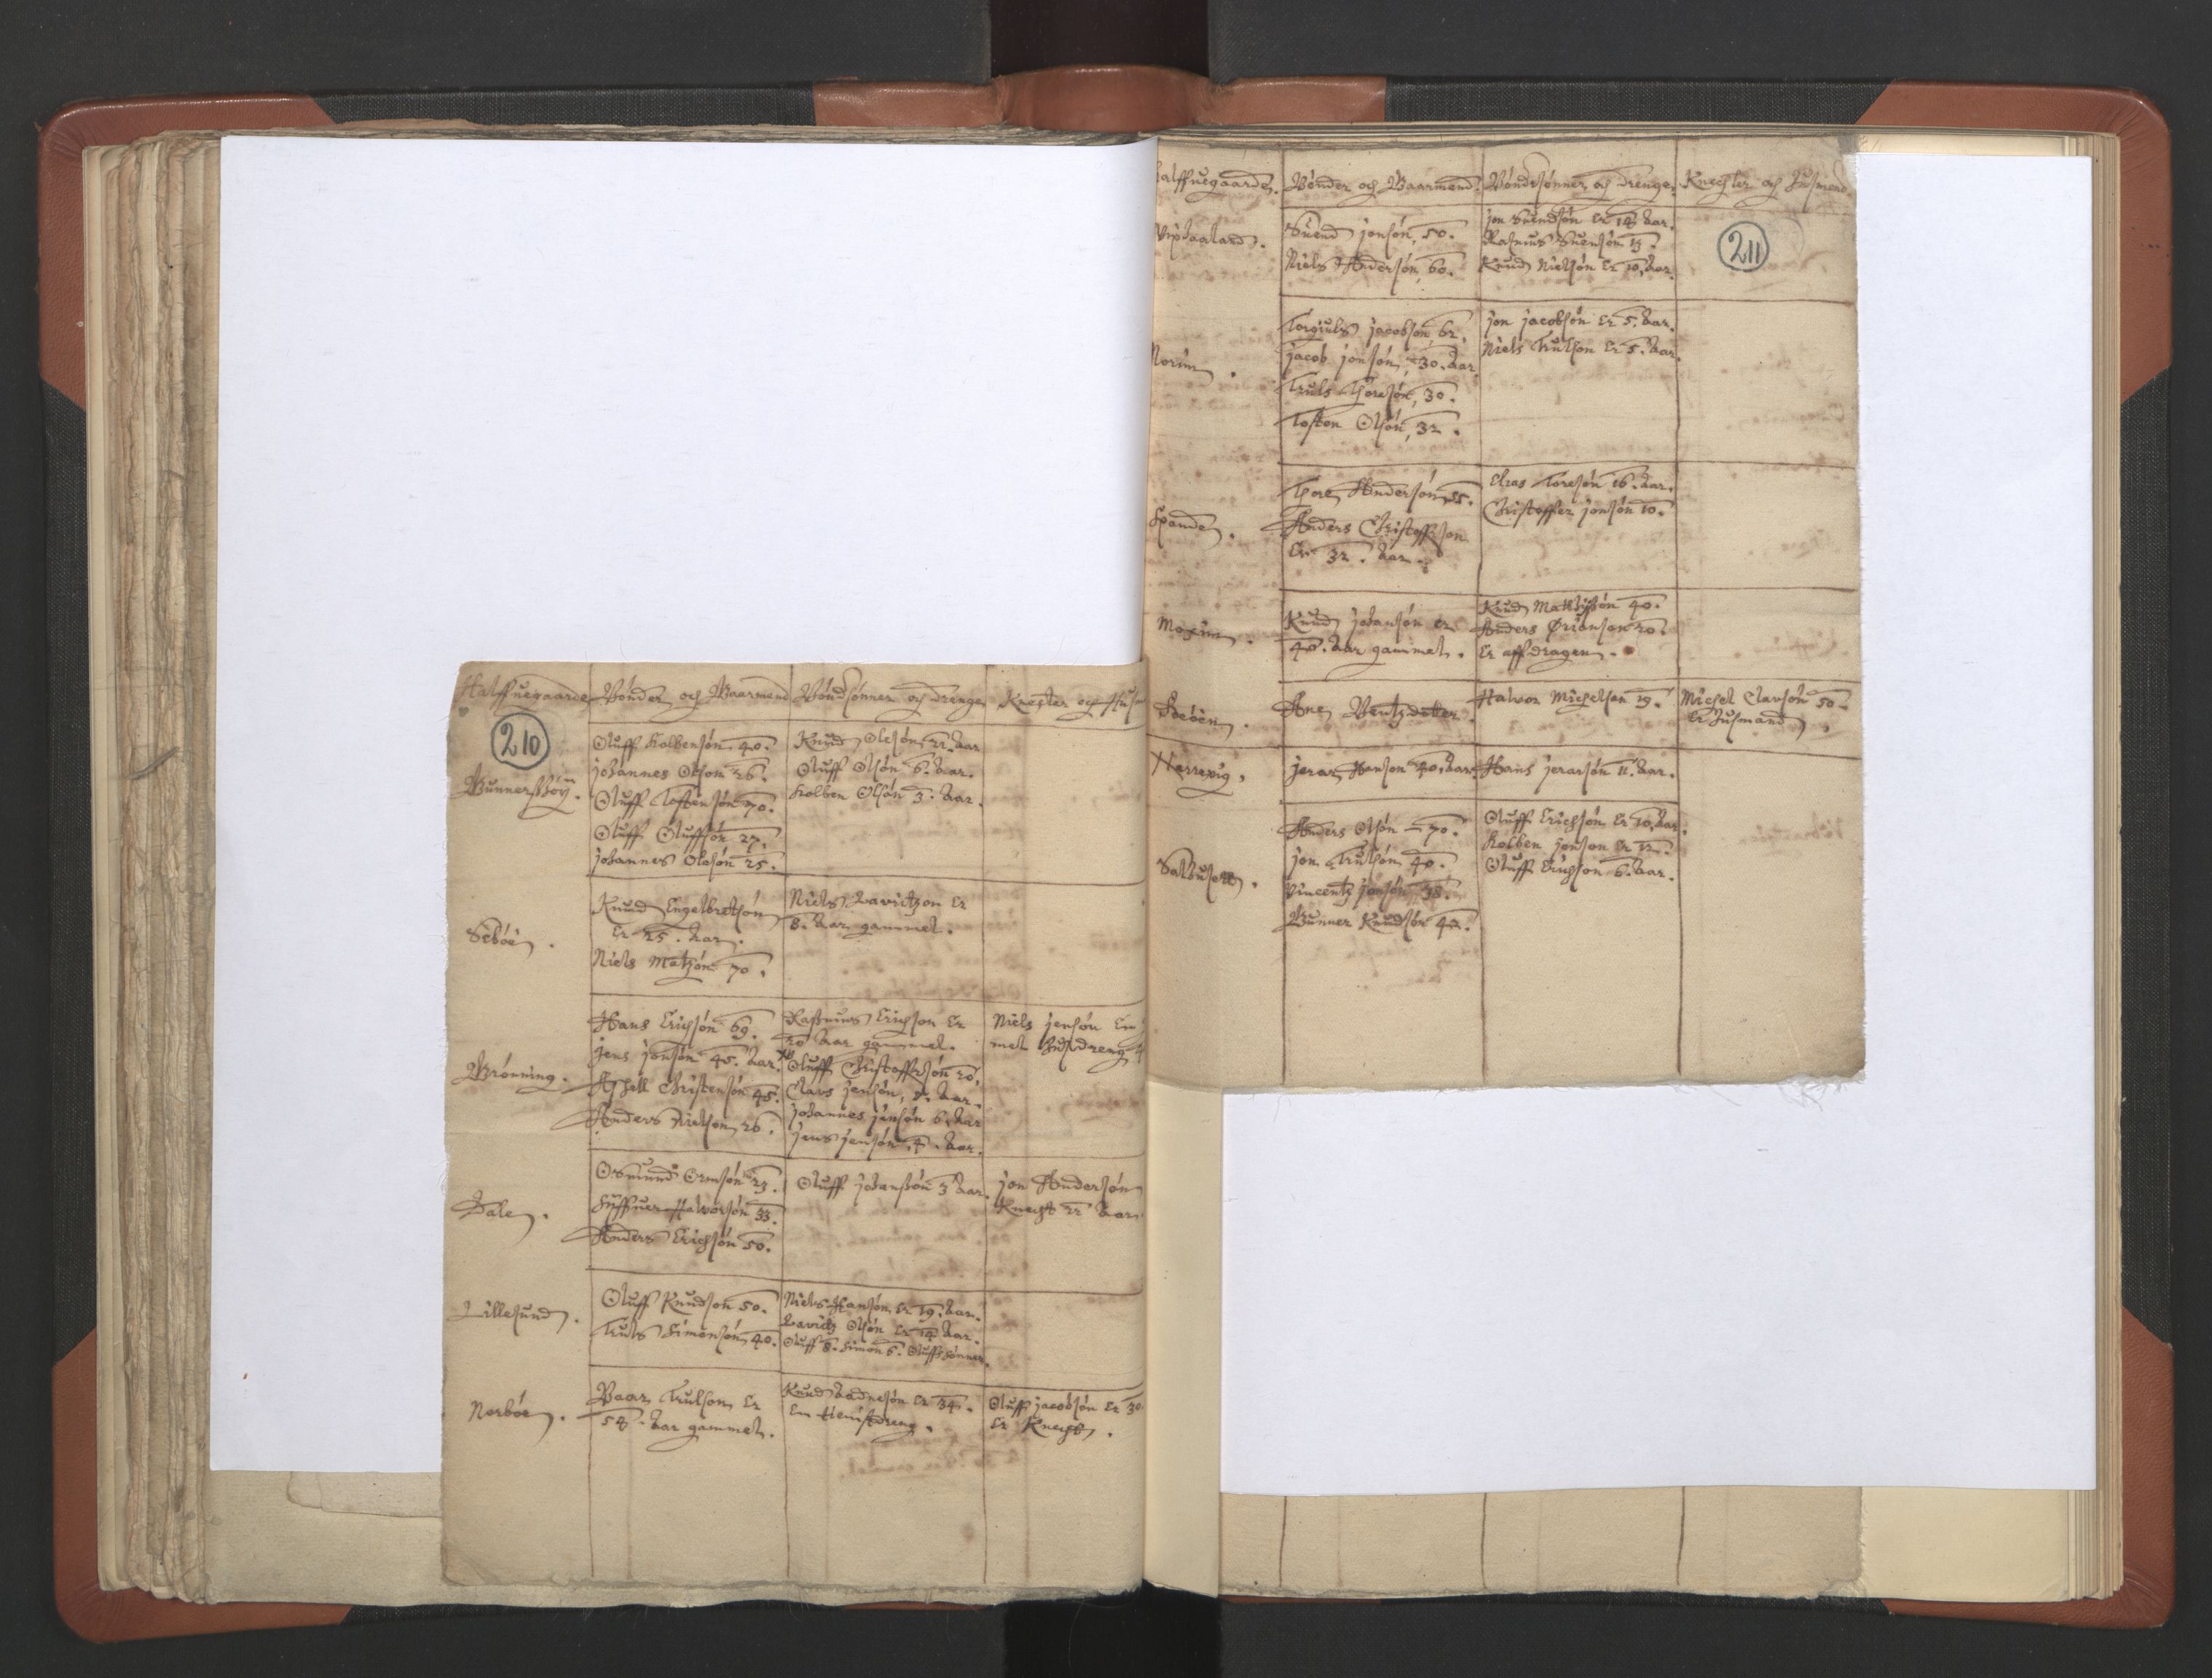 Halffuegaarde Bønder och Baarmend Bøndsønner och drenge Knegter och Hus
210
Gunnersbøy.
Oluff Kolbensøn 40.
Johannes Olson 26.
Oluff Tostensøn 70.
Oluff Oluffsøn 27.
Johannes Olesøn 25.
Knud Olesøn 22. Aar
Oluff Olsøn 6. Aar.
Kolben Olsøn 3. Aar.
Sebøe.
Knud Engelbretsøn
er 25. Aar.
Niels Matzøn 70.
Niels Lavritzon er
8. Aar gammel.
Grønning.
Hans Erichsøn 69.
Jens Jonsøn 45. Aar.
Aschell Christensøn 45.
Anders Nielson 26.
Rassmus Erichson er
20 Aar gammel.
Oluff Christoffersøn 20.
Claus Jensøn, Aar.
Johannes Jensøn 6. Aar
Jens Jensøn, 4. Aar.
Niels Jensøn En
mel husdreng
Dale.
Osmund Ormsøn 23.
Siffuer Halvorsøn 33.
Anders Erichsøn 50.
Oluff Johansøn 3 Aar.
Jon Andersøn
Knecht 22 Aar.
Lillesund.
Oluff Knudson 50.
Truls Simensøn 40.
Niels Hansøn er 19. Aar.
Lavritz Olsøn er 14 Aar.
Oluff 8. Simon 6. Oluffs sønner.
Norbøe.
Baar Trulson er
58. Aar gammel.
Knud Aadnesøn er 34.
En tienistdreng.
Oluff Jacobsøn er 30
er Knecht.
alffuegaarde. Bønder och Baarmend. Bøndesønner och drenge. Knechter och Husmend.
211
Opsaaland.
Suend Jonsøn, 50.
Niels Andersøn, 60.
Jon Suendsøn er 18 Aar.
Rasmus Suensøn 13.
Knud Nielsøn er 10. Aar.
Norum.
Torgiuls Jacobson 62.
Jacob Jonsøn, 30. Aar
Truls Thoresøn, 30.
Tosten Olsøn, 32.
Jon Jacobsøn er 5. Aar.
Niels Trulson er 5. Aar.
Spande.
Thore Andersøn 55.
Anders Christoffson
er 32. Aar.
Elias Toresøn 16. Aar.
Christoffer Jonsøn 10.
Mogim.
Knud Johansøn er
40. Aar gammel.
Knud Mattissøn 40.
Anders Ørianson 20.
er aff dragen.
Bøen.
Ane Bentzdotter.
Halvor Michelson 19.
Michel Clavsøn 50.
er Husmand,
Narrevig,
Jerar Hanson 40. Aar.
Hans Jerarsøn 11. Aar.
Salhus.
Anders Olsøn - 70.
Jon Trulsøn 40.
Vincentz Jonsøn 38.
Gunner Knudsøn 42.
Oluff Erichsøn er 10. Aar.
Kolben Jonson er 12.
Oluff Erichson 6. Aar.